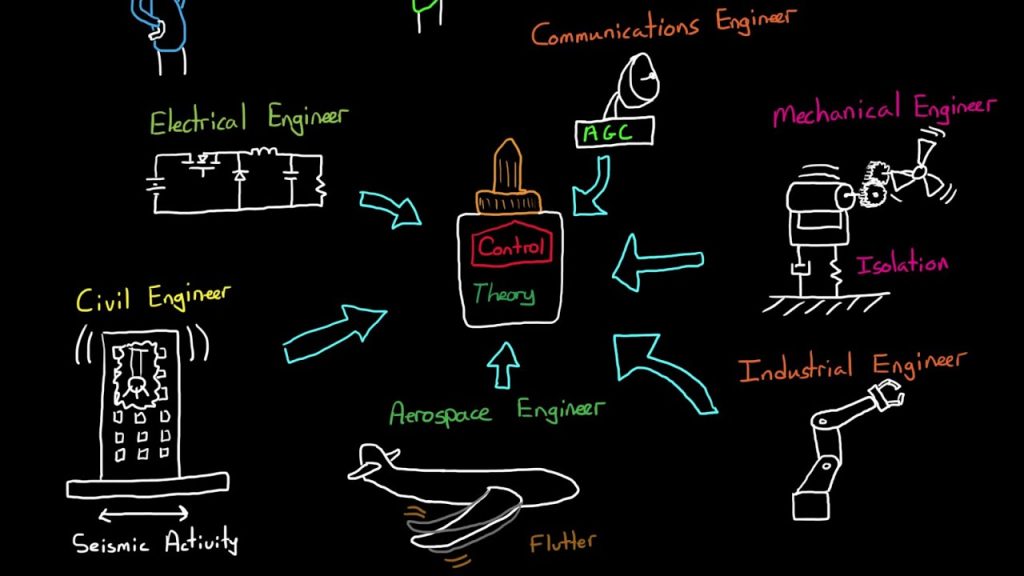 Communications Engineer
Electrical Engineer
Mechanical Engineer
AGC
Control
Theory
Isolation
Civil Engineer
Industrial Engineer
Aerospace Engineer
Seismic Activity
Flutter